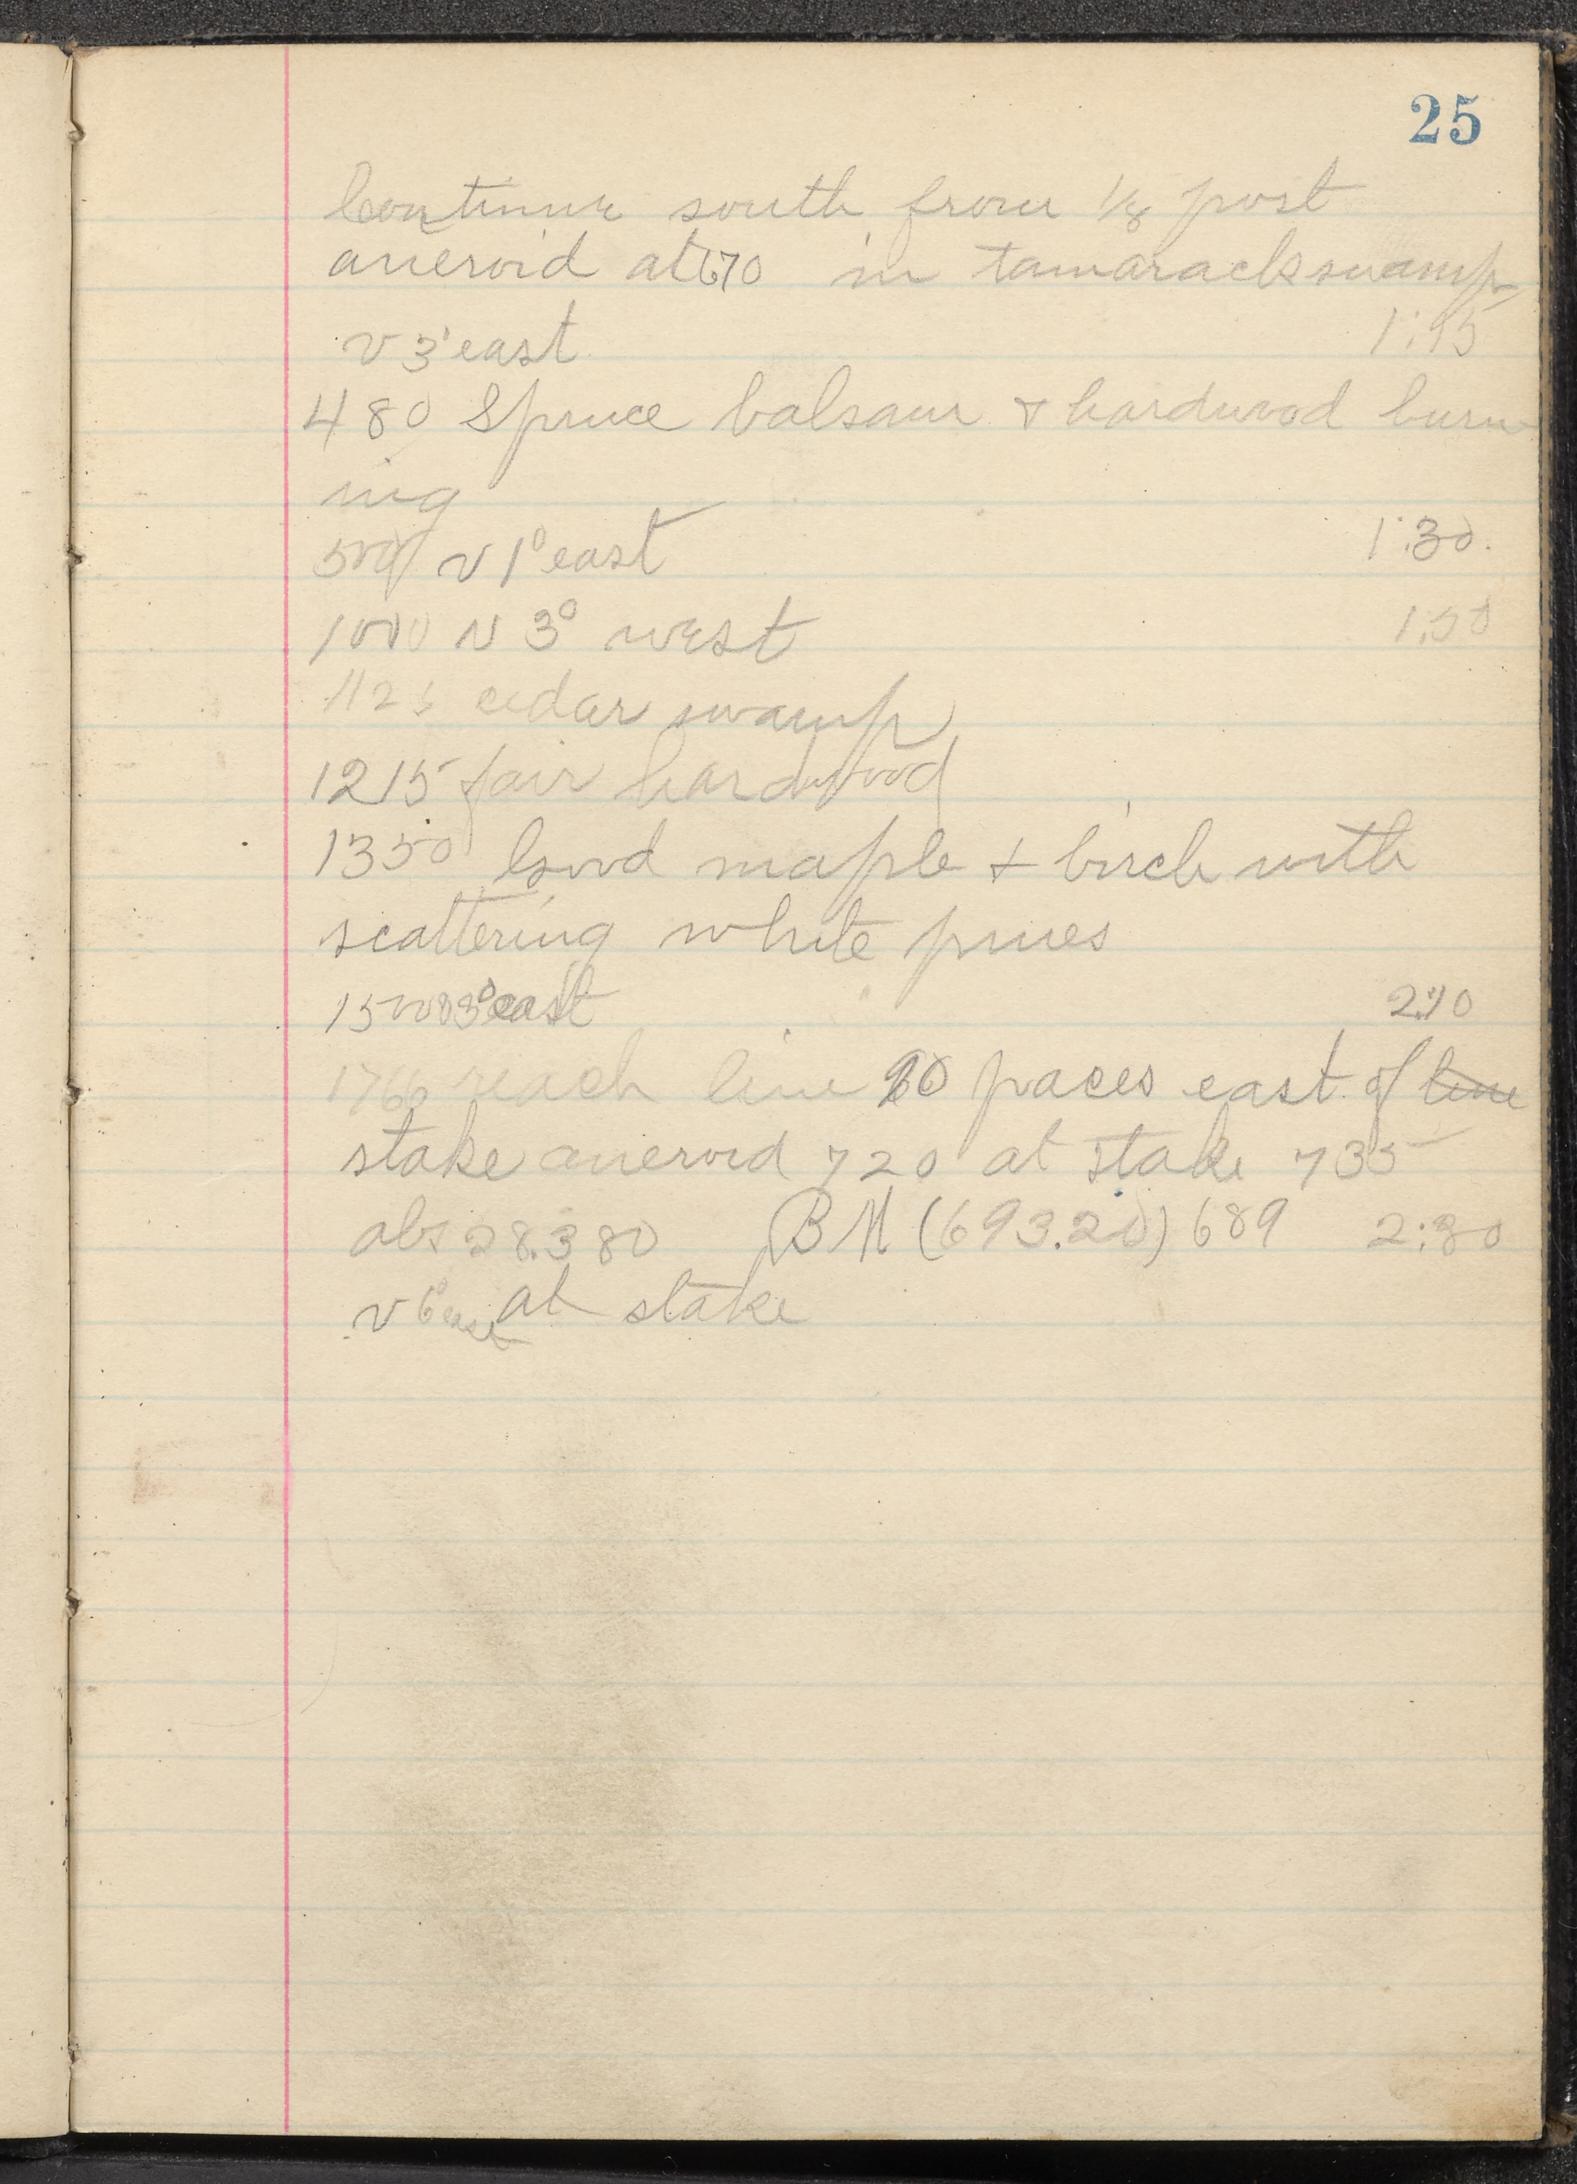 25
Continue south from 1/8 post
aneroid at 670 in tamarack swamp
v 3° east 1:15
480 Spruce balsam & hardwood burn
ing
500 v 1° east 1:30.
1000 v 3° west 1:50
1125 cedar swamp
1215 fair hardwood
1350 Good maple + birch with
scattering white pines
1500 v 3° east 2:10
1766 reach line paces east of line
stake aneroid 720 at stake 735
abs 28.380 BM (693.20) 689 2:30
v 6° east at stake